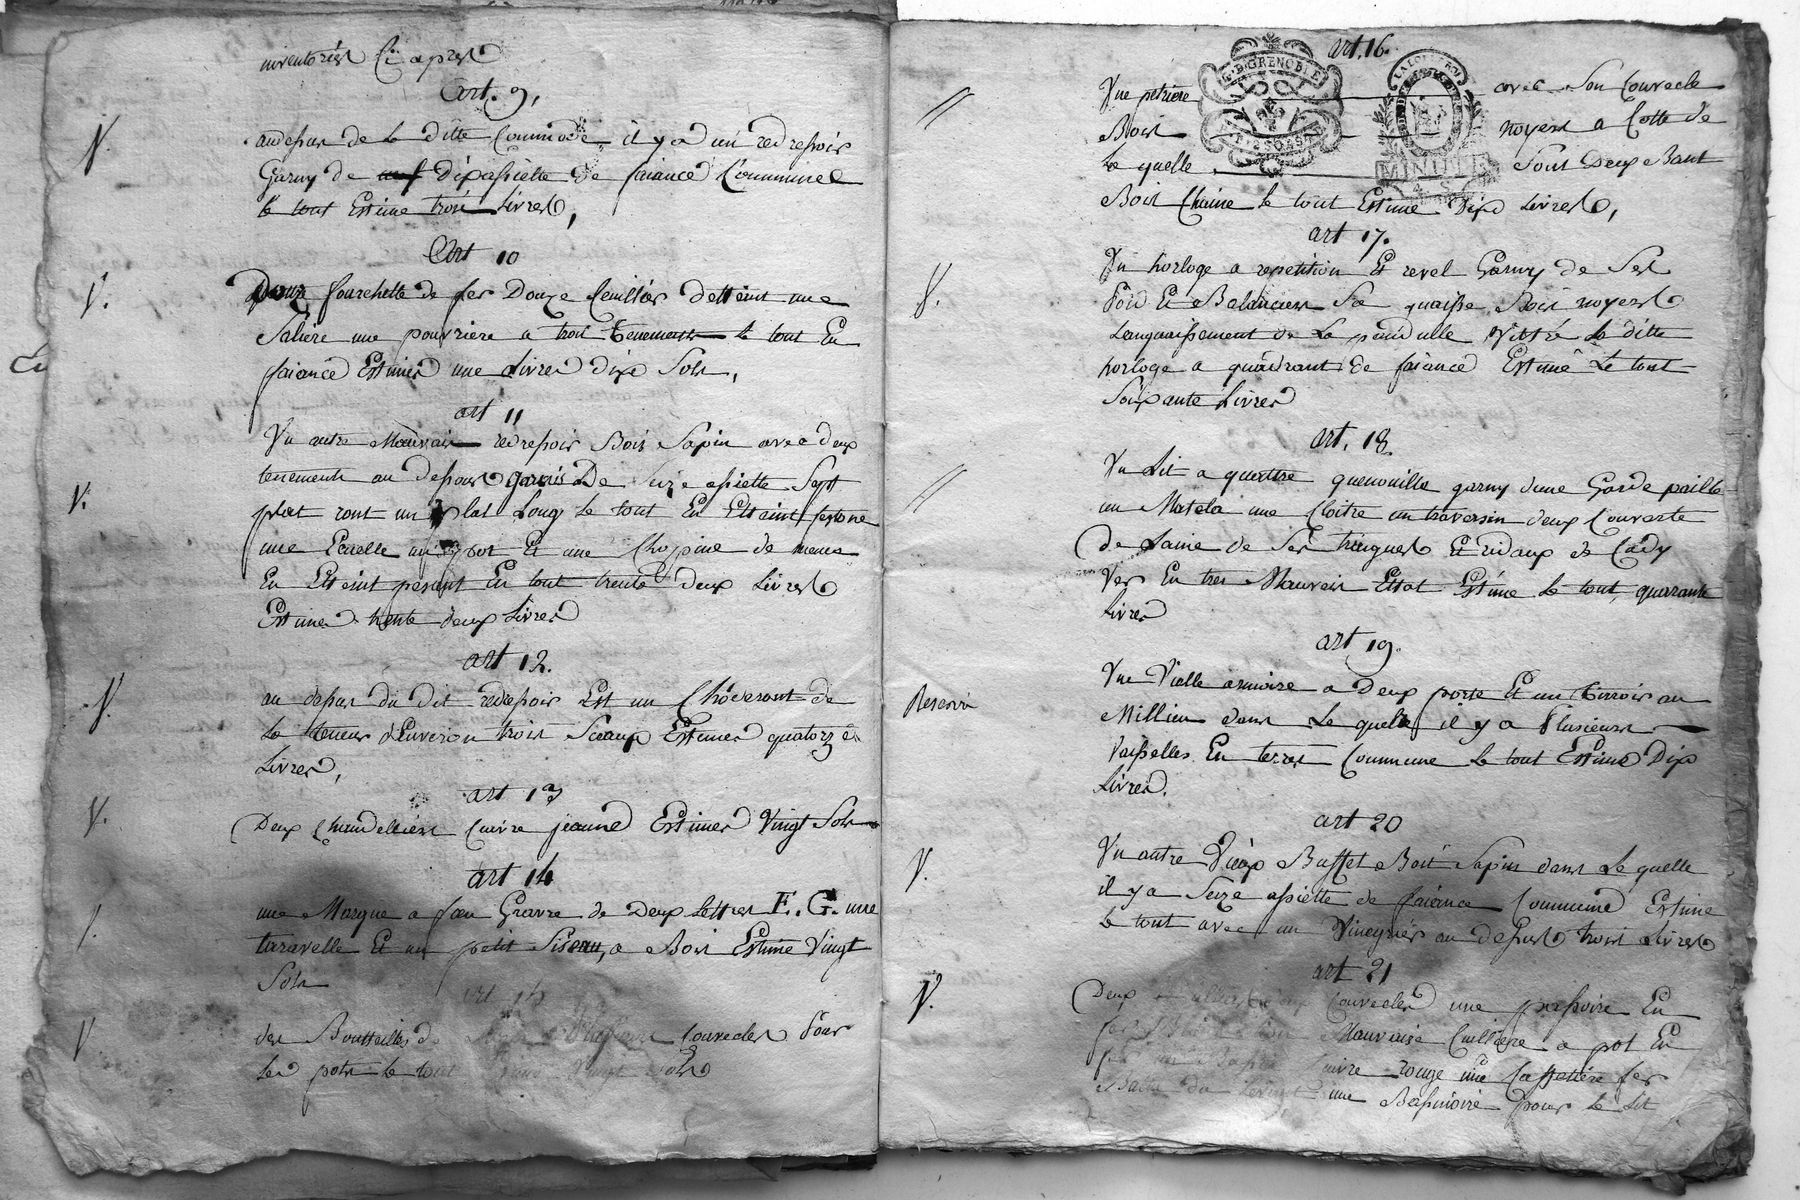 inventoriés Ci apres
art. 9,
audesus de la ditte Commode il y a un redresoir
Garny de dix assiette de faiance Commune
le tout Estime trois Livres,
art 10
Douze fourchette de fer Douze Ceuillier detteint une
Saliere une pouvriere a troit tenement le tout En
faiance Estimés une Livres dix Sols,
art 11
Un autre Mauvais redresoir Bois Sapin avec deux
tenements au desous garnis De Seize assiette Sept
plat ront un plat Long le tout En Etteint festone
une Ecuelle un pot Et une Chopine de meme
En Etteint pesent En tout trente deux Livres
Estimes trente deux Livres
art 12.
au desus du dit redresoir Est un Choderont de
la teneur d'Enveron trois Sceaux Estimes quatorze
Livres,
art 13
Deux Chandelliers Cuivre jeaune Estimes Vingt Sols
art 14
une Marque a feu Gravre de Deux Lettres F. G. une
taravelle Et un petit Siseau a Bois Estime Vingt
Sols
art 15
des Bouteilles de Couvecles Pour
les pots le tout Vingt Sols
art. 16.
G. D. GRENOBLE
MINUTE
Une petriere avec Son Couvecle
Bois noyers a Cotte de
la quelle Sont Deux Bant
Bois Chaine le tout Estime Dix Livres,
art 17.
Un horloge a repetition Et revel Garny de Ses
Poid Et Balancier Sa quaisse Bois noyers
Lanquaissement de La pandulle Vittré la ditte
horloge a quadrant de faiance Estimé Le tout
Soixante Livres
art. 18.
Un Lit a quattre quenouille garny dune Garde paille
un Matela une Cloitre un traversin deux Couverte
de Laine de Ses tringues Et ridaux de Cady
Ver En tres Mauvais Ettat Estime le tout quarante
Livres
art 19.
Reservé
Une Vielle armoire a Deux porte Et un tirroir au
Millieu dans Le quelle il y a Plusieurs
Vaisselles En terres Commune le tout Estime Dix
Livres.
art 20
Un autre Vieux Buffet Bois Sapin dans Le quelle
il y a Seize assiette de faiance Commune Estime
le tout avec un Vineyrier au desus trois Livres
art 21
Deux Couvecles une passoire En
fer Mauvaise Cuilliere a pot En
fer un Cuivre rouge une Caffettiere fer
Blanc une Bassinoire pour le Lit